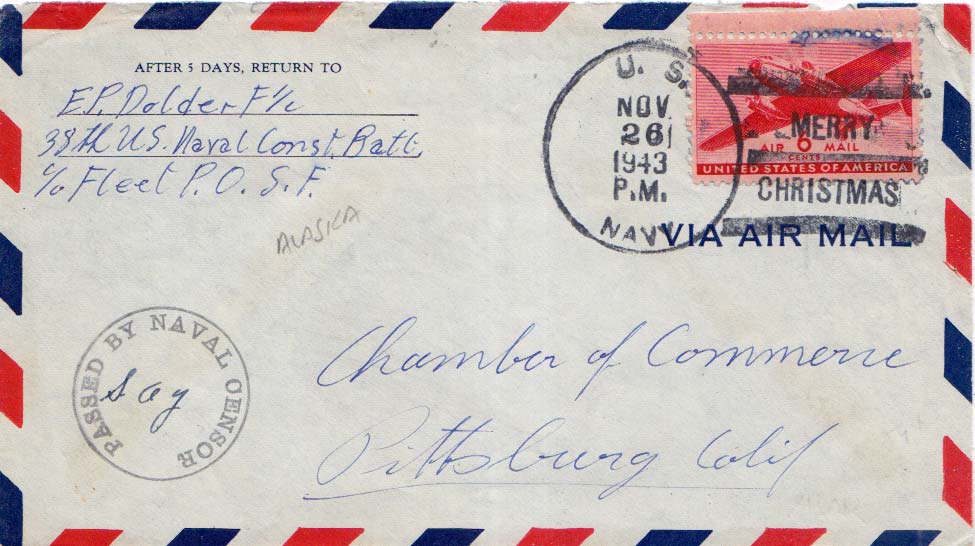 AFTER 5 DAYS, RETURN TO
E.P. Dolder F 1/c
38th U.S. Naval Const. Batt.
c/o Fleet P.O. S.F.
ALASKA
U. S.
NOV
26
1943
P.M.
NAVY
MERRY
CHRISTMAS
AIR 6 MAIL
CENTS
UNITED STATES OF AMERICA
VIA AIR MAIL
PASSED BY NAVAL CENSOR
Chamber of Commerce
Pittsburg Calif